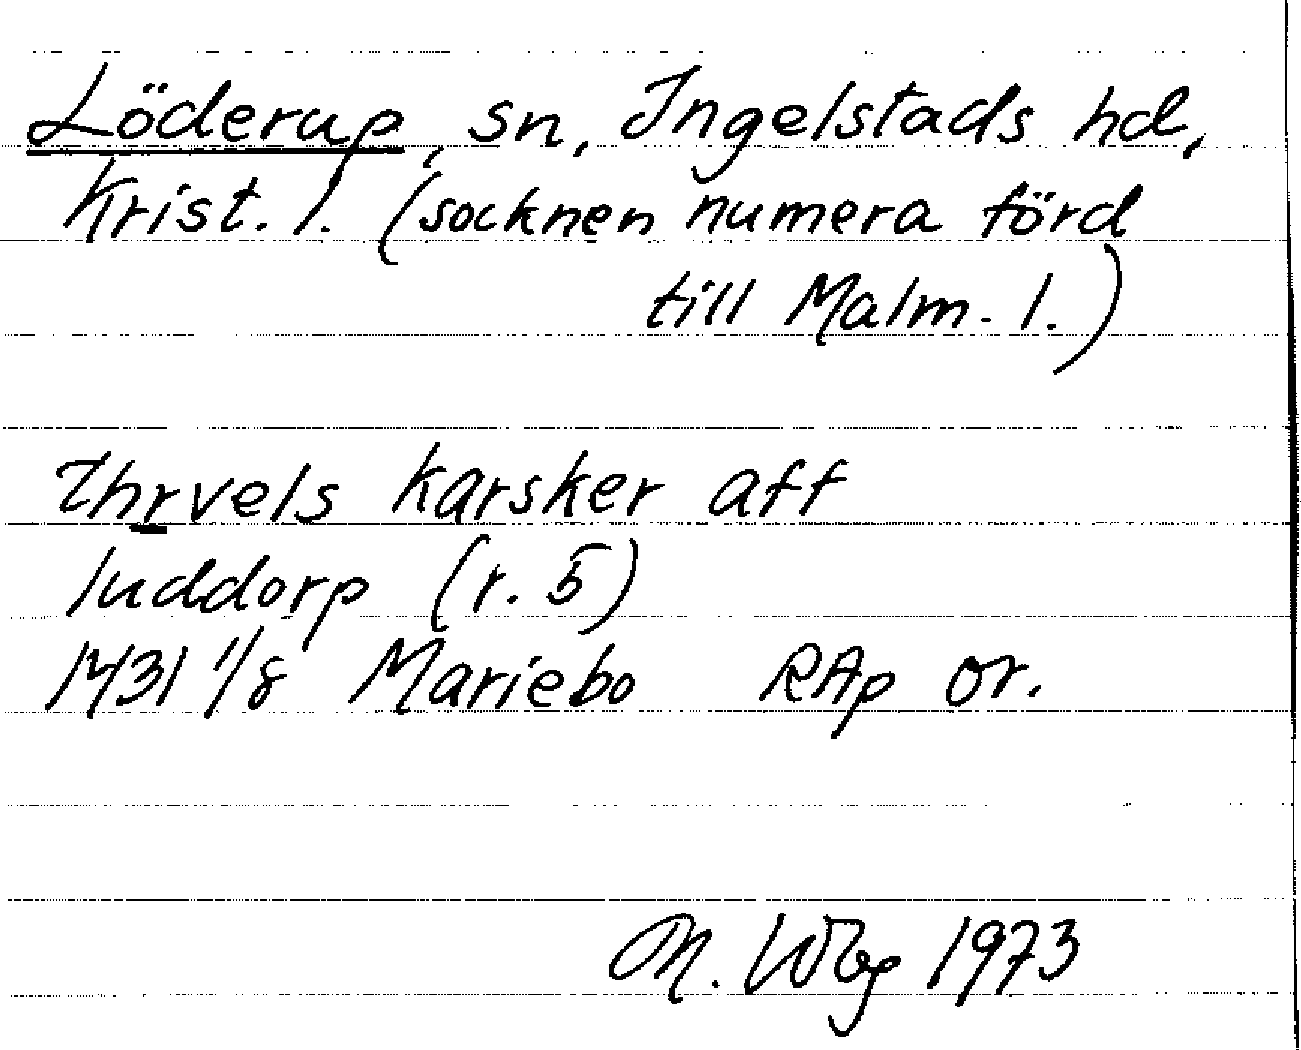 Löderup, sn, Ingelstads hd,
Krist. l. (socknen numera förd
till Malm. l.)
Thrvels karsker aff
luddorp (r. 5)
1431 1/8 Mariebo RAp or.
M. Wbg 1973